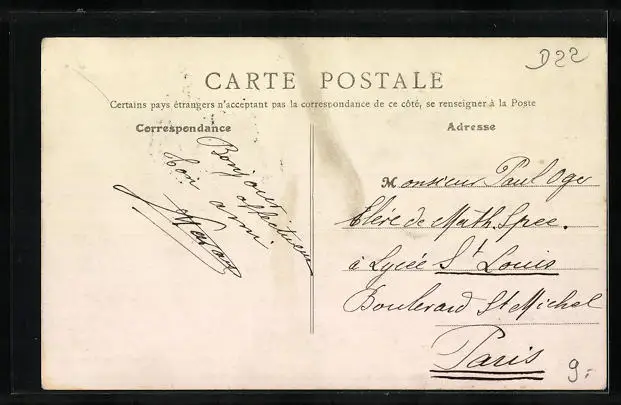 D22
CARTE POSTALE
Certains pays étrangers n'acceptant pas la correspondance de ce côté, se renseigner à la Poste
Correspondance
Bonjour
affectueux
ton ami
Adresse
Monsieur Paul Oge
Élève de Math. Spec.
à Lycée St Louis
Boulevard St Michel
Paris
9.-